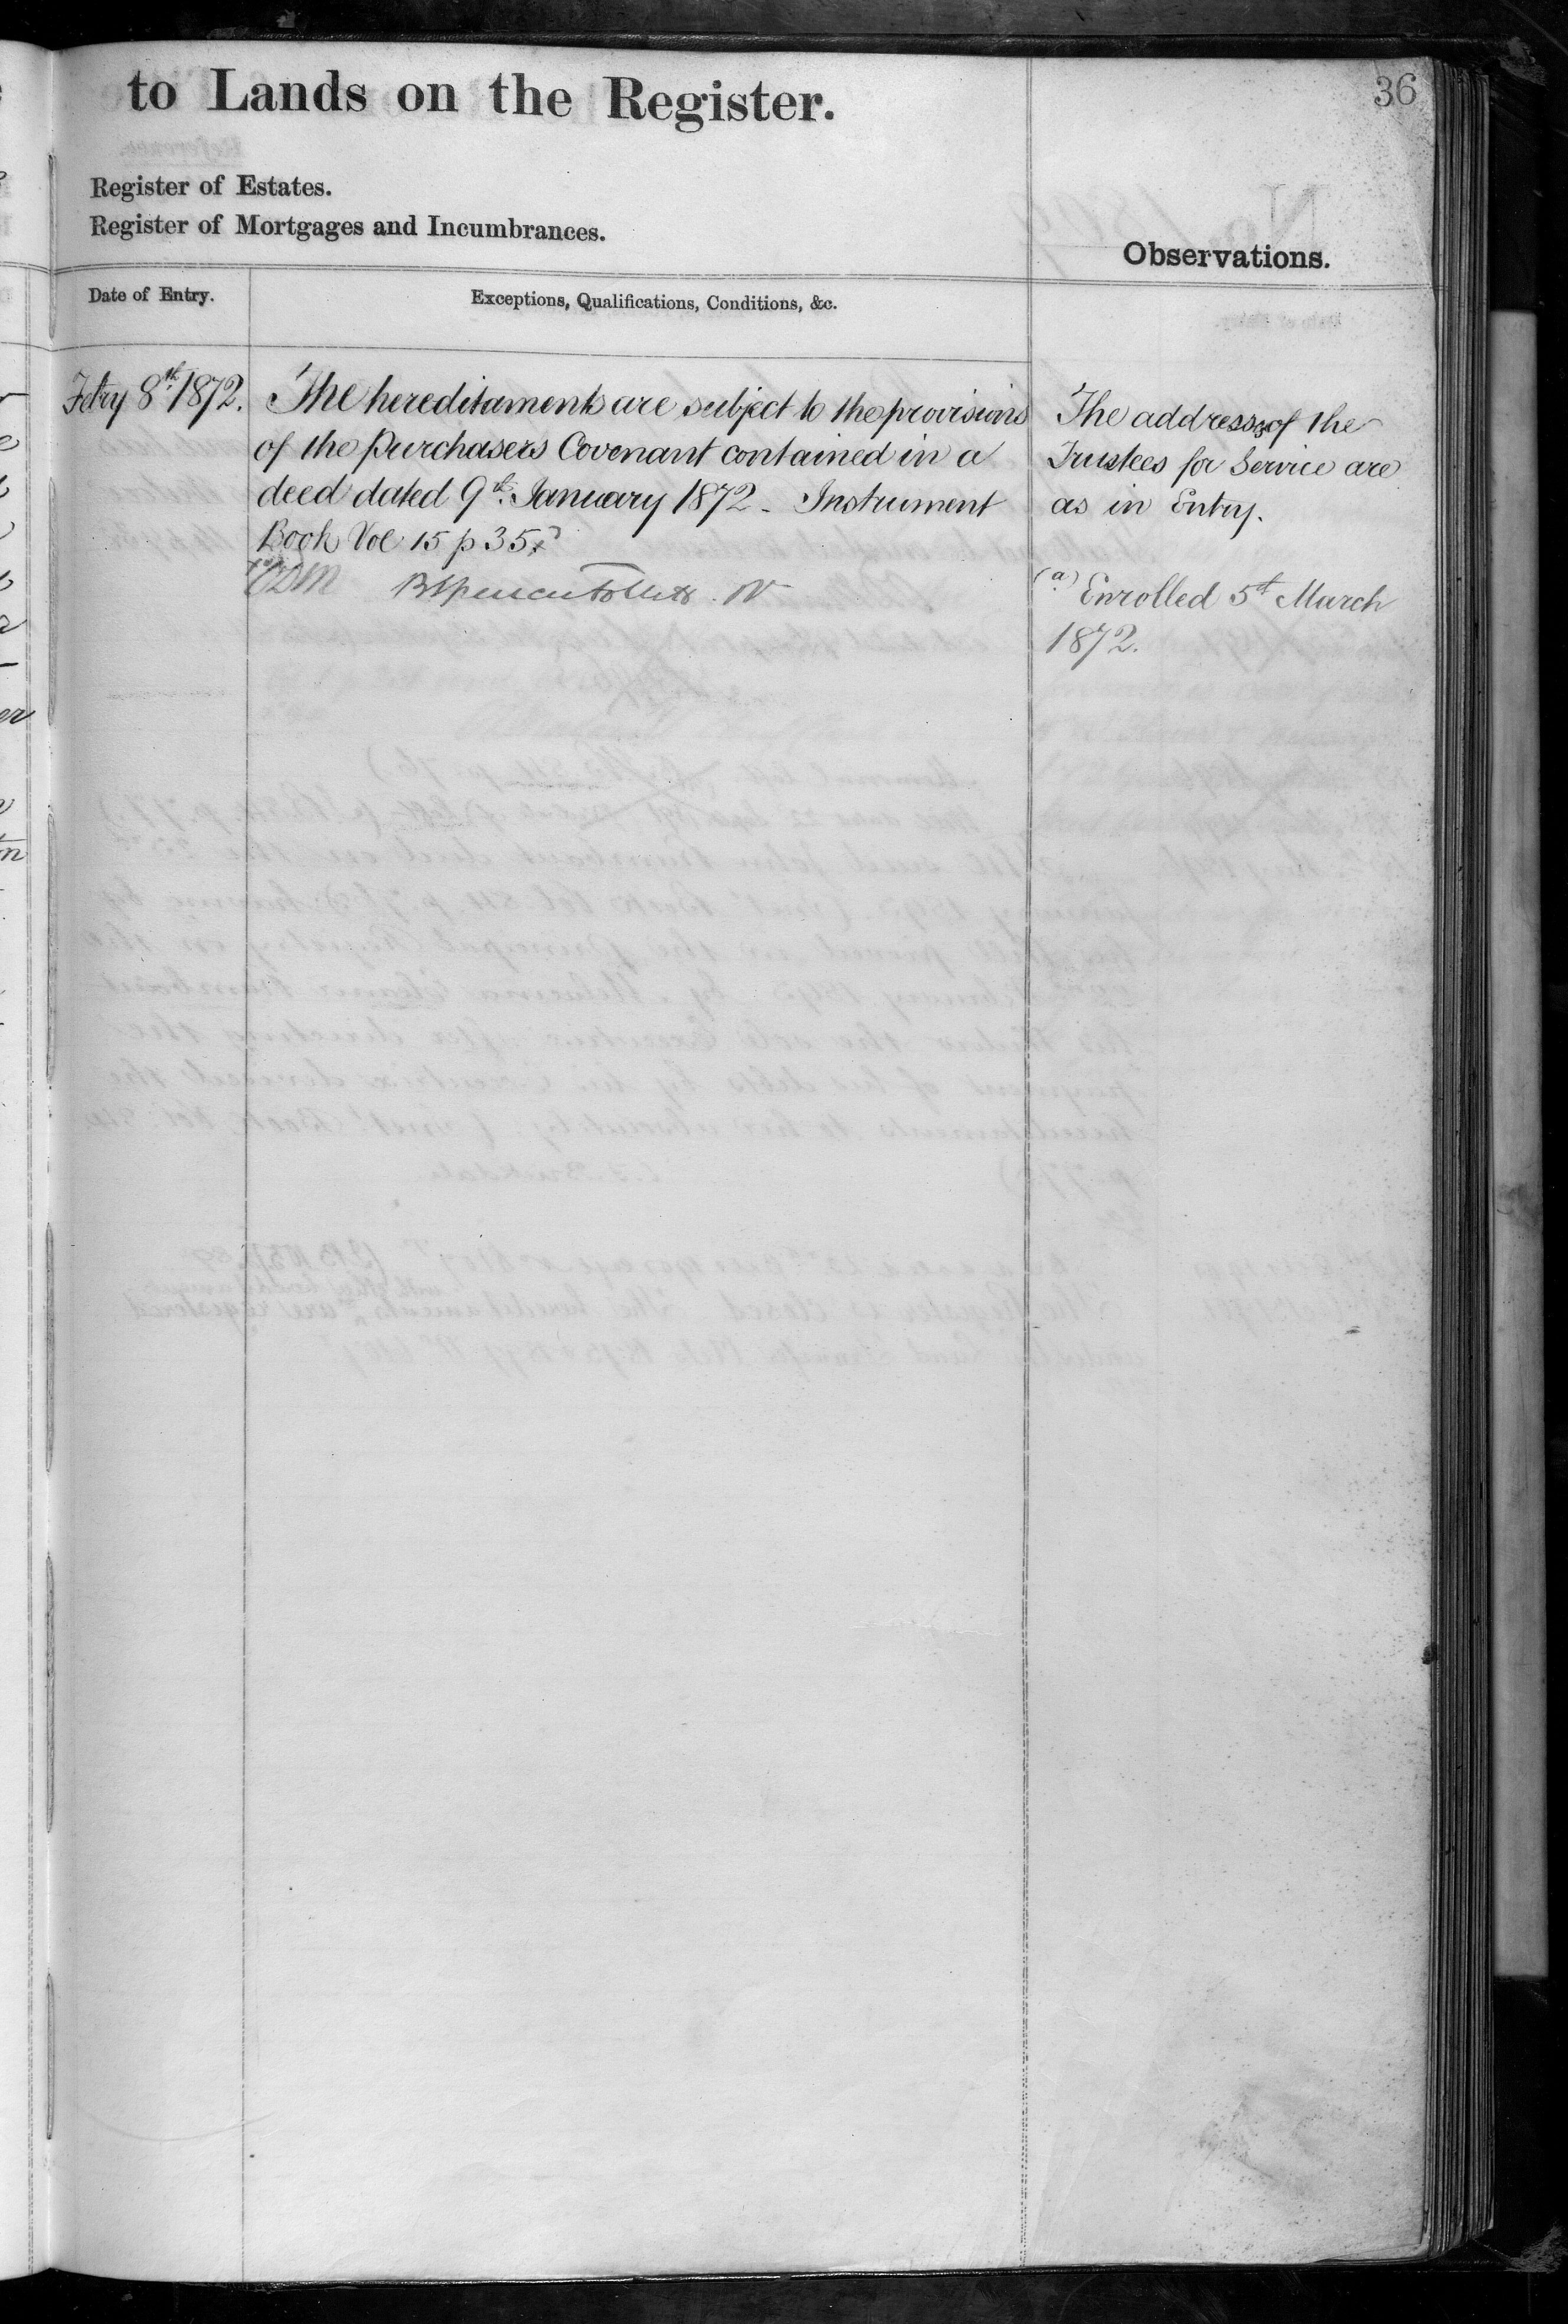 36
to Lands on the Register.
Register of Estates.
Register of Mortgages and Incumbrances.
Observations.
Date of Entry.
Exceptions, Qualifications, Conditions, &c.
Febry 8th 1872.
The hereditaments are subject to the provisions
of the Purchasers Covenant contained in a
deed dated 9th January 1872 - Instrument
Book Vol 15 p 35
The address of the
Trustees for Service are
as in Entry.
(a) Enrolled 5th March
1872.